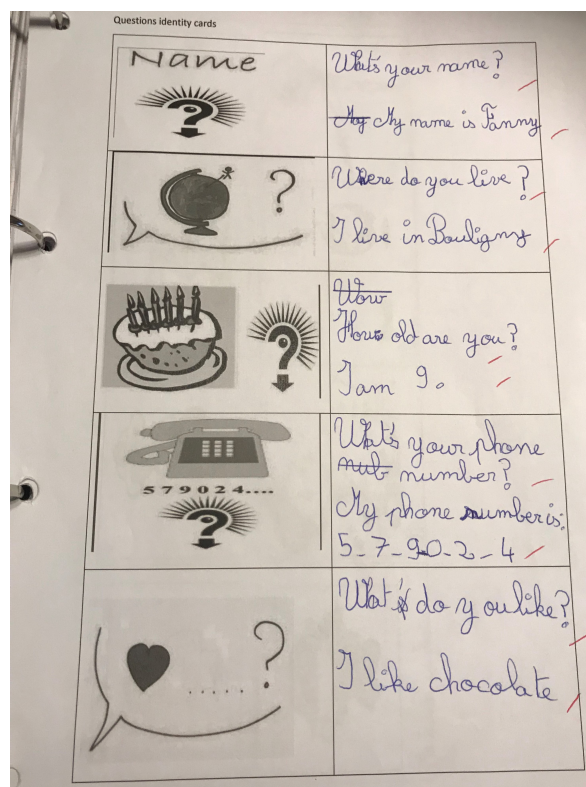 Questions identity cards
Name
?
What's your name?
My name is Fanny
?
Where do you live?
I live in Bouligny
?
Wow
How old are you?
I am 9.
5 7 9 0 2 4....
?
What's your phone
nub number?
My phone number is:
5-7-9-0-2-4
..... ?
What do you like?
I like chocolate